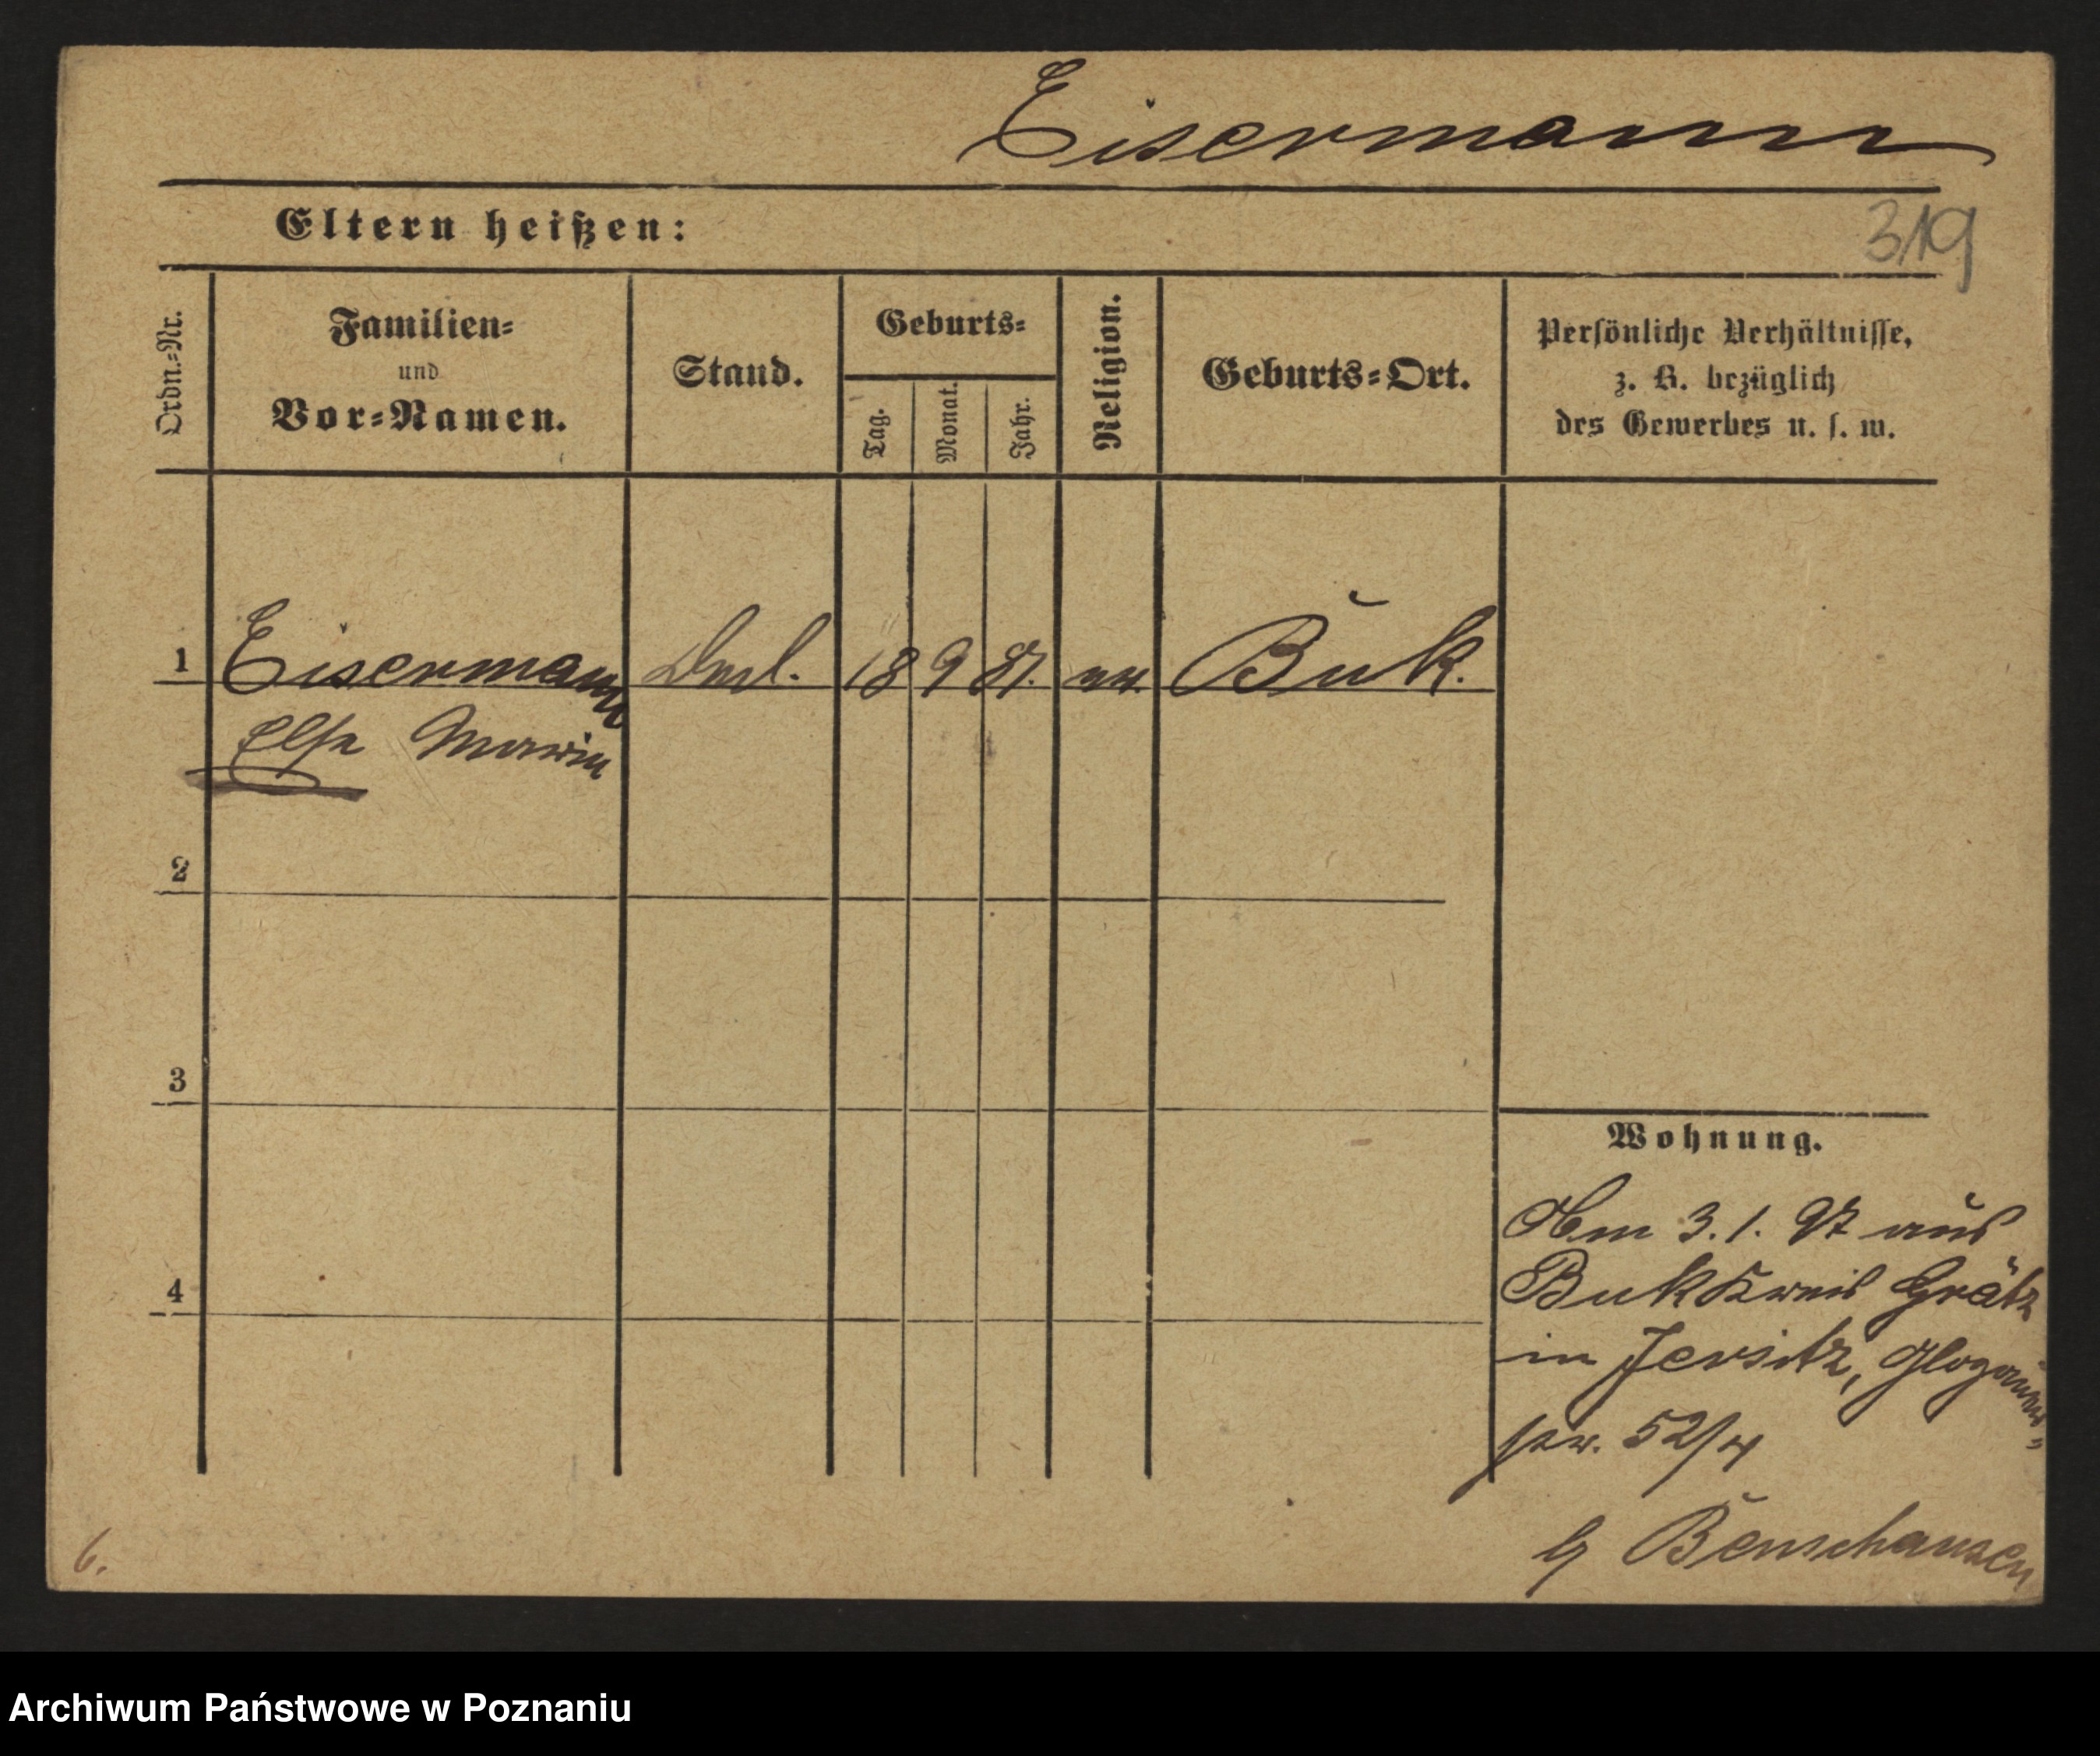 Eisermann
Eltern heißen:
319
Ordn.=Nr.
Familien=
und
Vor=Namen.
Stand.
Geburts=
Tag.
Monat.
Jahr.
Religion.
Geburts=Ort.
Persönliche Verhältnisse,
z. B. bezüglich
des Gewerbes u. s. w.
1 Eisermann 18 9 87. ev. Buk.
Else Marie
2
3
4
Wohnung.
Am 3. 1. 97 aus
Buk Kreis Grätz
in Jersitz, Glogauer=
str. 52/4
b/ Benschausen
6.
Archiwum Państwowe w Poznaniu